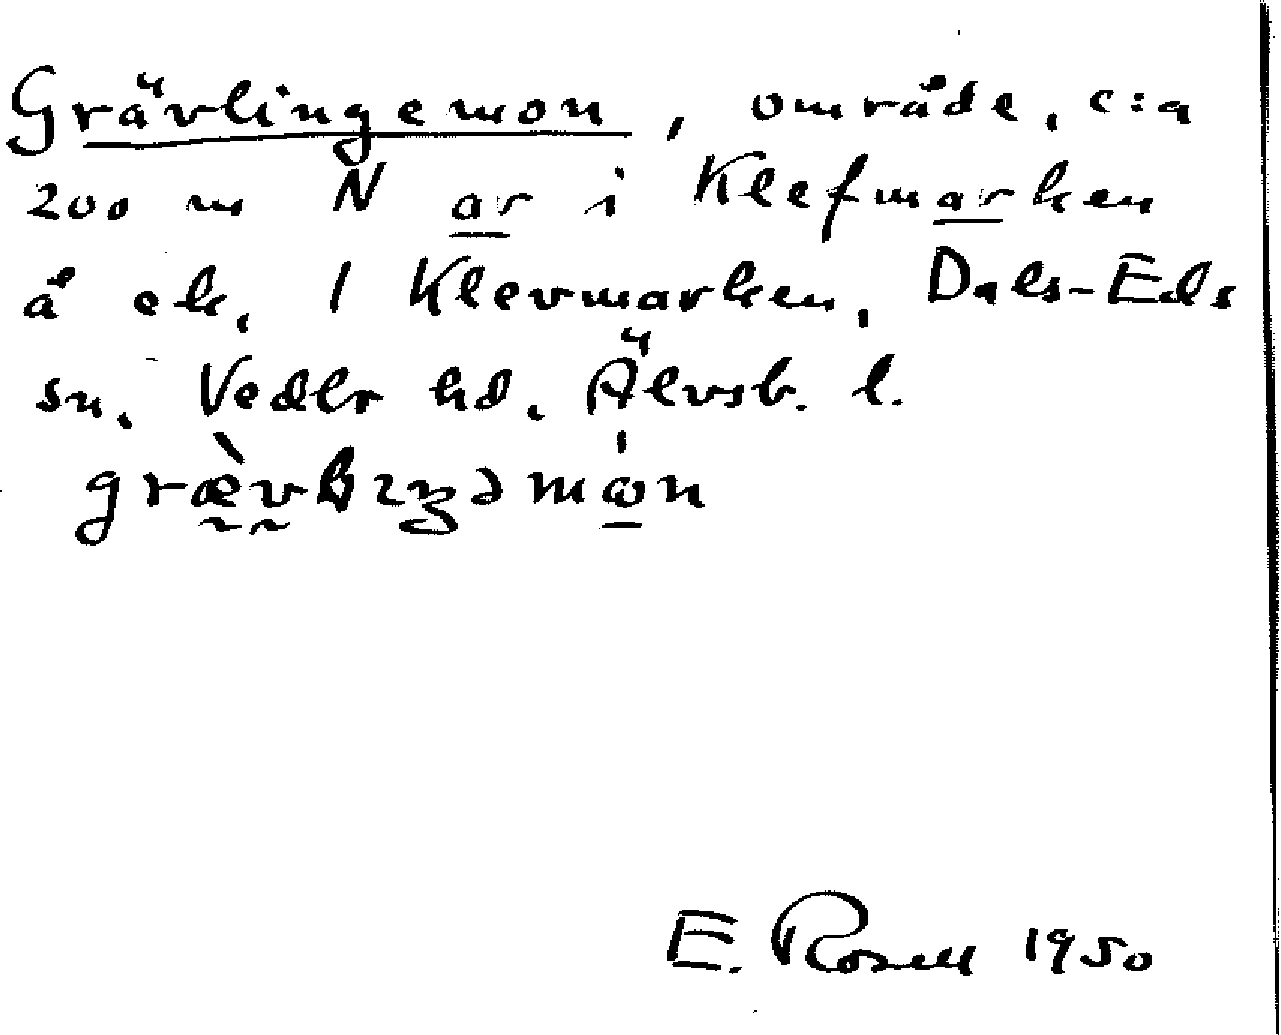 Grävlingemon, område, c:a
200 m N ar i Klefmarken
å ek. 1 Klevmarken, Dals-Eds
sn. Vedbo hd. Älvsb. l.
E. Rosell 1950